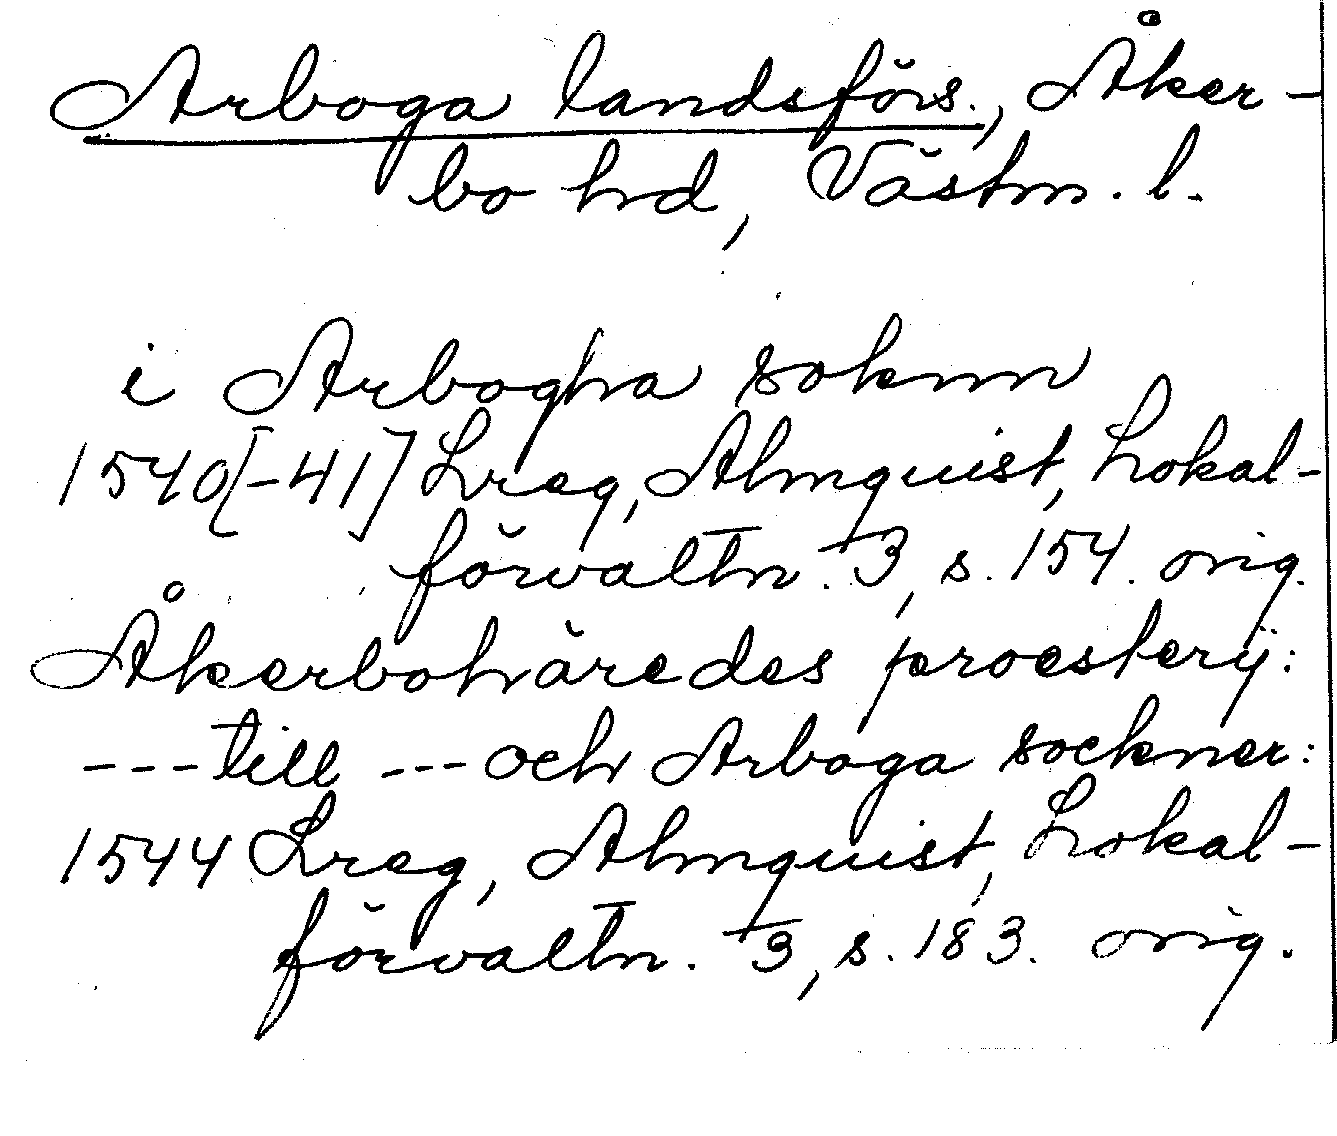 Arboga landsförs., Åker-
bo hd, Västm. l.
i Arbogha soknn
1540[-41] Lreg, Almquist, Lokal-
förvaltn. 3, s. 154. orig.
Åkerbohäredes proesterij:
---till ---och Arboga sockner:
1544 Lreg, Almquist, Lokal-
förvaltn. 3, s. 183. orig.